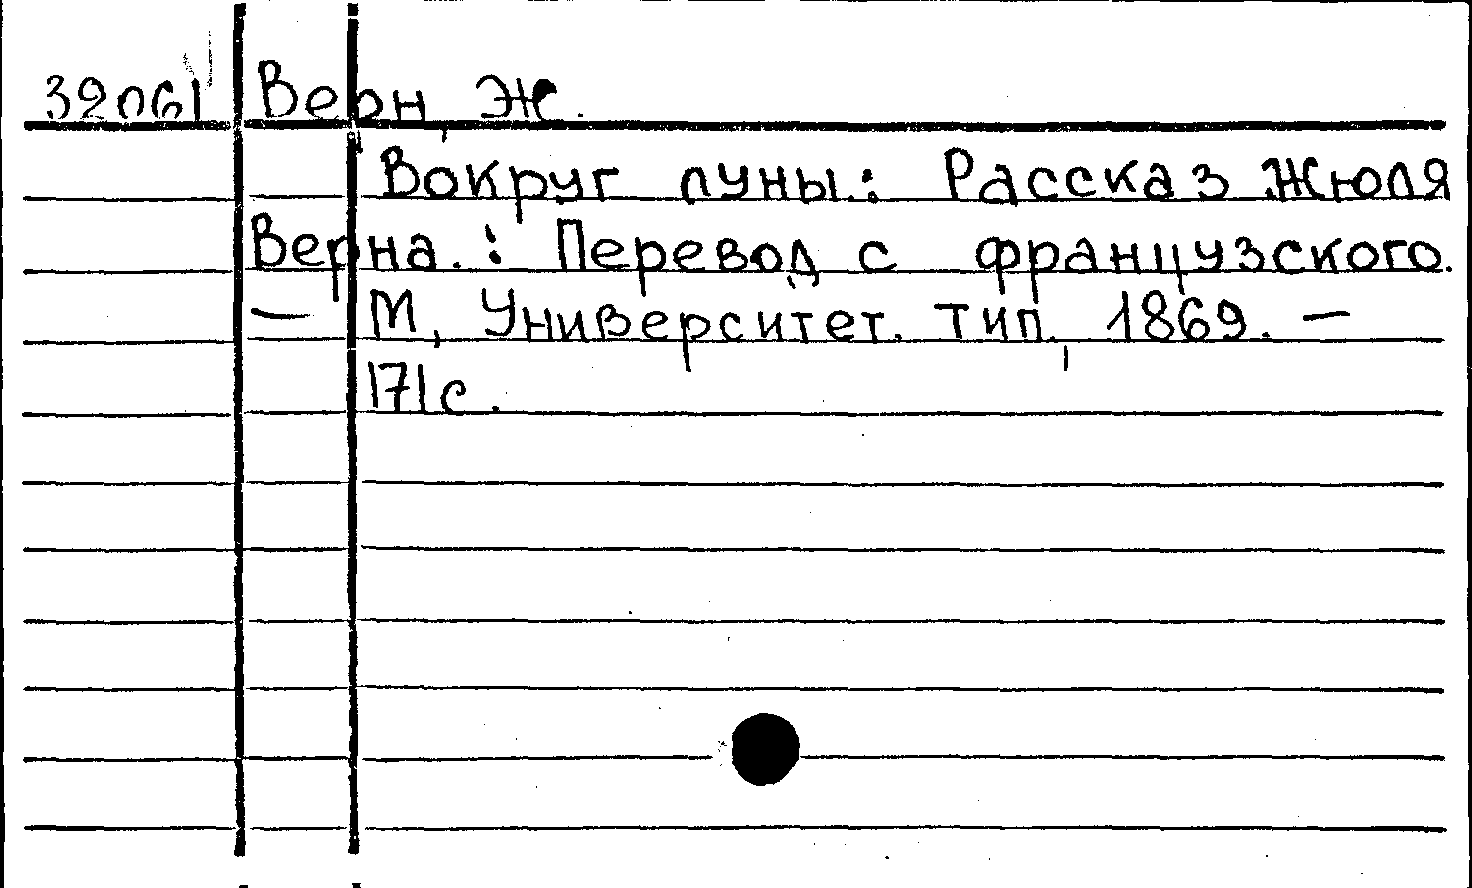 32061 Верн, Ж.
Вокруг луны.: Рассказ Жюля
Верна. : Перевод с французского.
— М, Университет. тип., 1869. —
171 с.